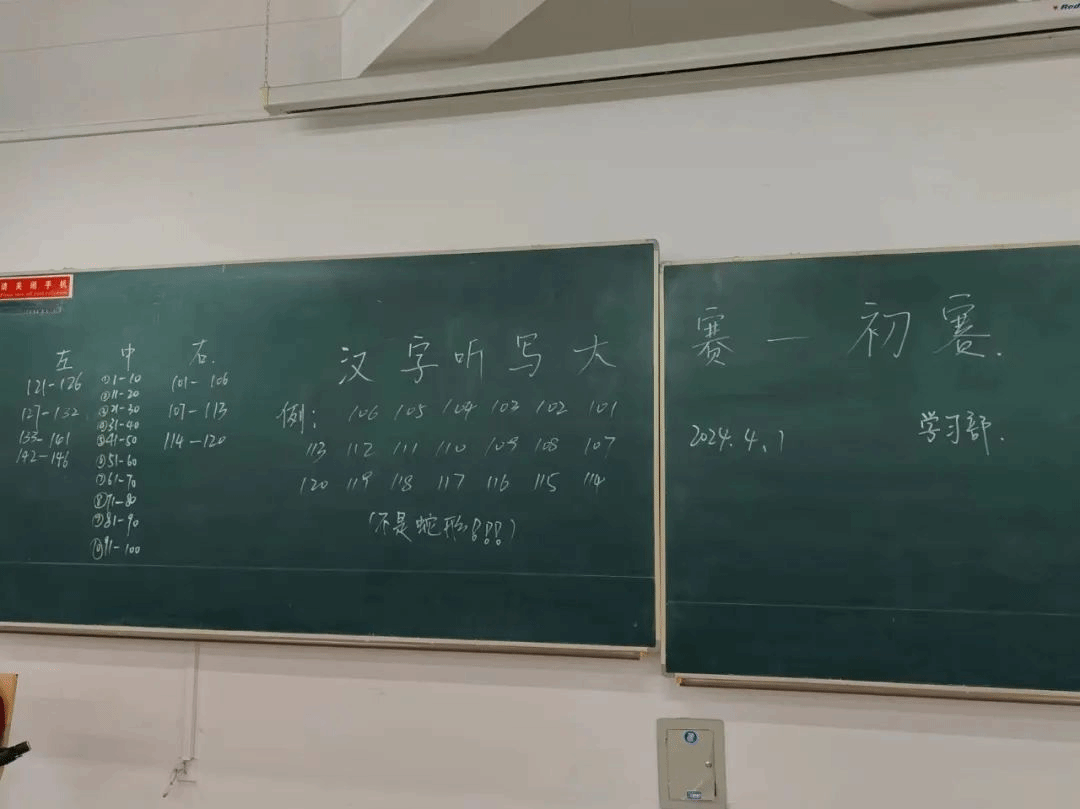 请关闭手机
左 中 右.
121-126 ①1-10 101-106
②11-20
127-132 ③21-30 107-113
④31-40
133-141 ⑤41-50 114-120
142-146 ⑥51-60
⑦61-70
⑧71-80
⑨81-90
⑩91-100
汉字听写大赛—初赛.
例: 106 105 104 103 102 101
113 112 111 110 109 108 107
120 119 118 117 116 115 114
(不是蛇形!!!)
2024.4.1 学习部.